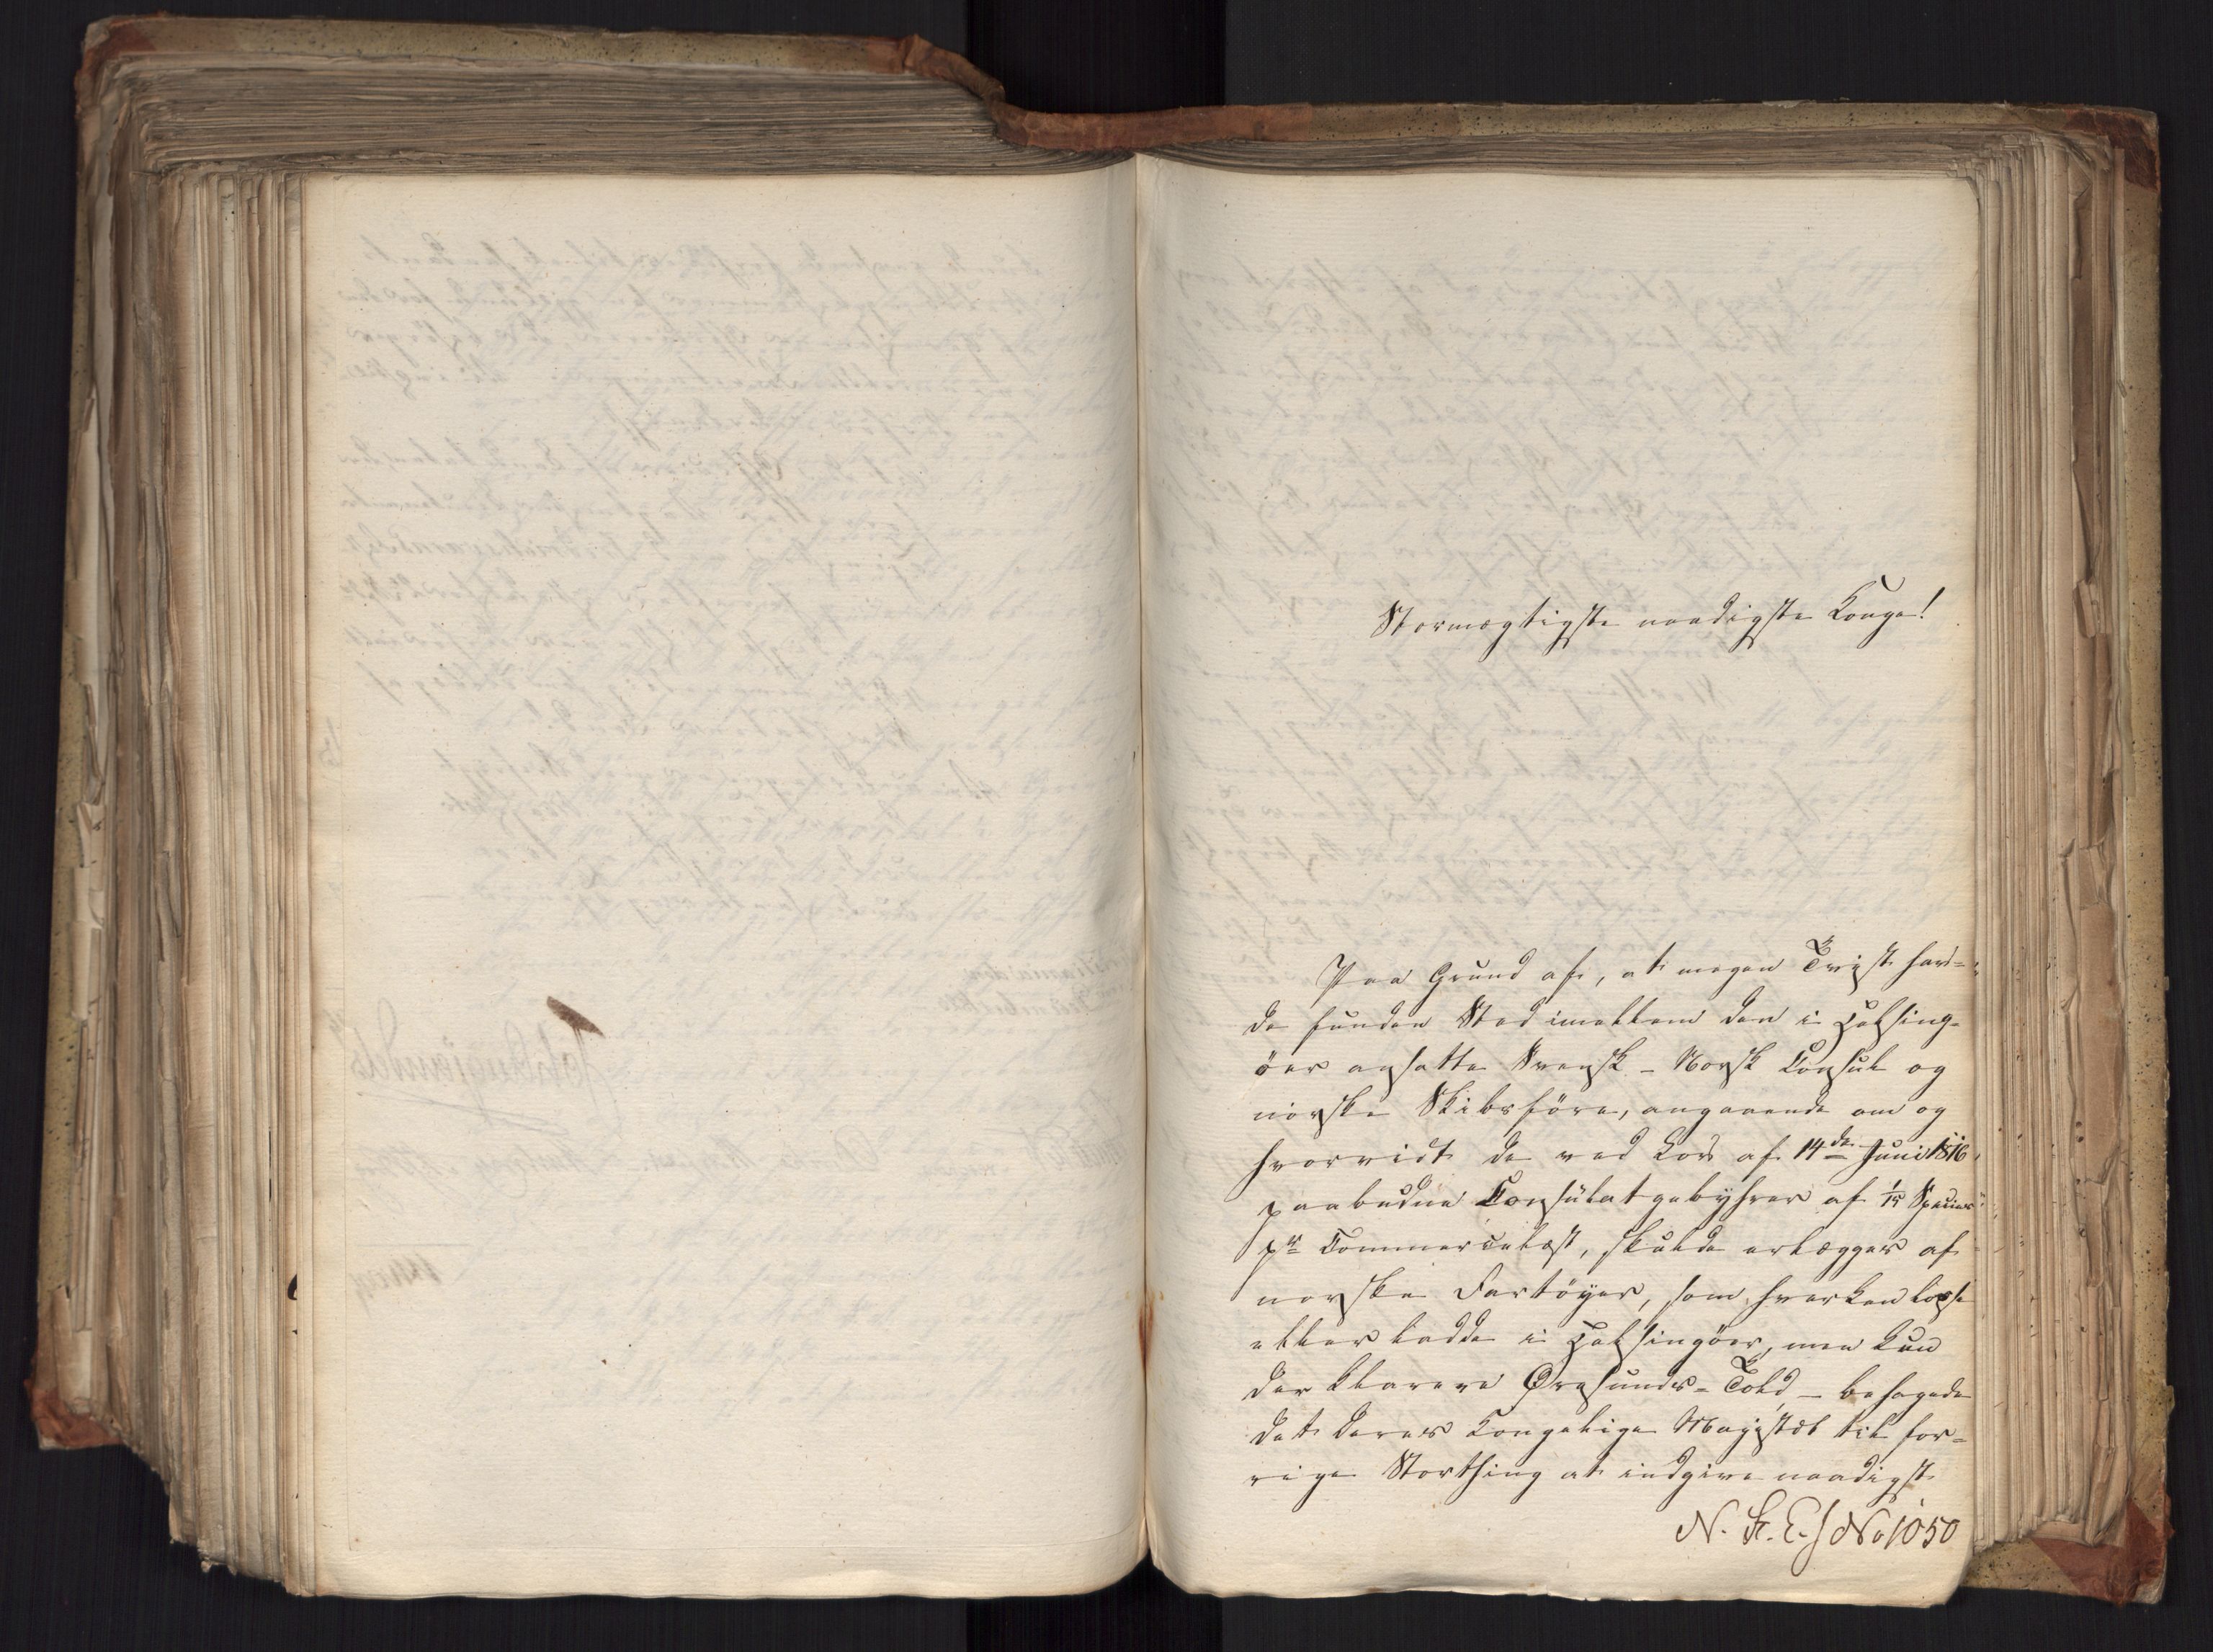 Stormægtigste naadigste Konge!
Paa Grund af, at megen Tvist hav-
de funden Sted imellem den i Helsing-
öer ansatte Svensk-Norsk Consul og
norske Skibsföre, angaaende om og
hvorvidt de ved Lov af 14de Juni 1816
paabudne Consulatgebyhrer af 1/15 Species
pr Commercelæst, skulde erlægges af
norske Fartöyer, som hverken losse
eller ladde i Helsingöer, men kun
der klarere Øresunds-Told, - behagede
det Deres Kongelige Majestæt til for-
rige Storthing at indgive naadigst
N. St. E. J No 1050